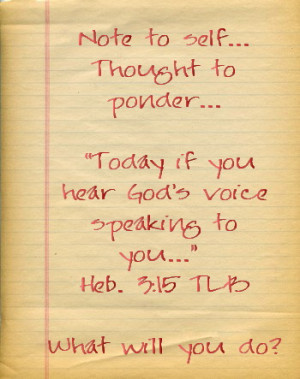 Note to self...
Thought to
ponder...
"Today if you
hear God's voice
speaking to
you..."
Heb. 3:15 TLB
What will you do?